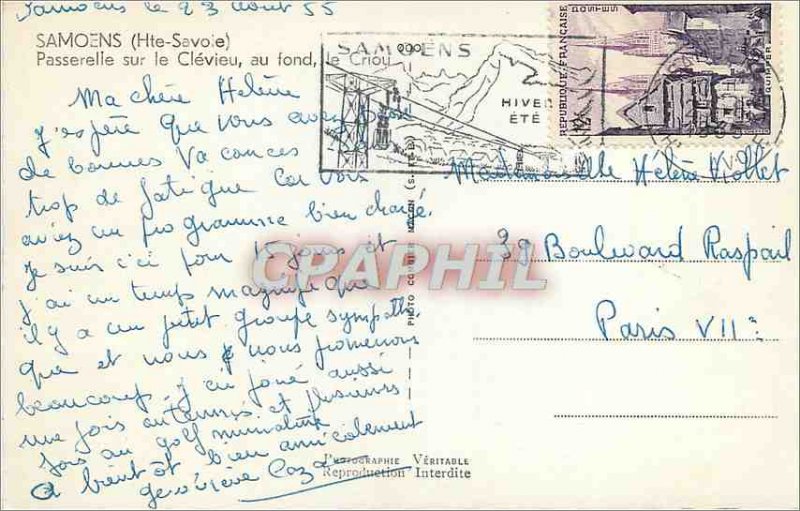 Samoens le 23 août 55
SAMOËNS (Hte-Savoie)
Passerelle sur le Clévieu, au fond, le Criou
Ma chère Helène
j'espère que vous avez passé
de bonnes vacances sans
trop de fatigue car vous
aviez un programme bien chargé.
Je suis ici pour 15 jours et
j'ai un temps magnifique
il y a un petit groupe sympathi
que et nous nous promenons
beaucoup, j'ai joué aussi
une fois au tennis et plusieurs
fois au golf miniature
A bientôt bien amicalement
Geneviève
SAMOENS
HIVER
ÉTÉ
RÉPUBLIQUE FRANÇAISE
POSTES
12F
QUIMPER
Mademoiselle Hélène Viollet
39 Boulevard Raspail
Paris VII
PHOTO COMBIER MACON (S.-ET-L.)
CPAPHIL
PHOTOGRAPHIE VÉRITABLE
Reproduction Interdite